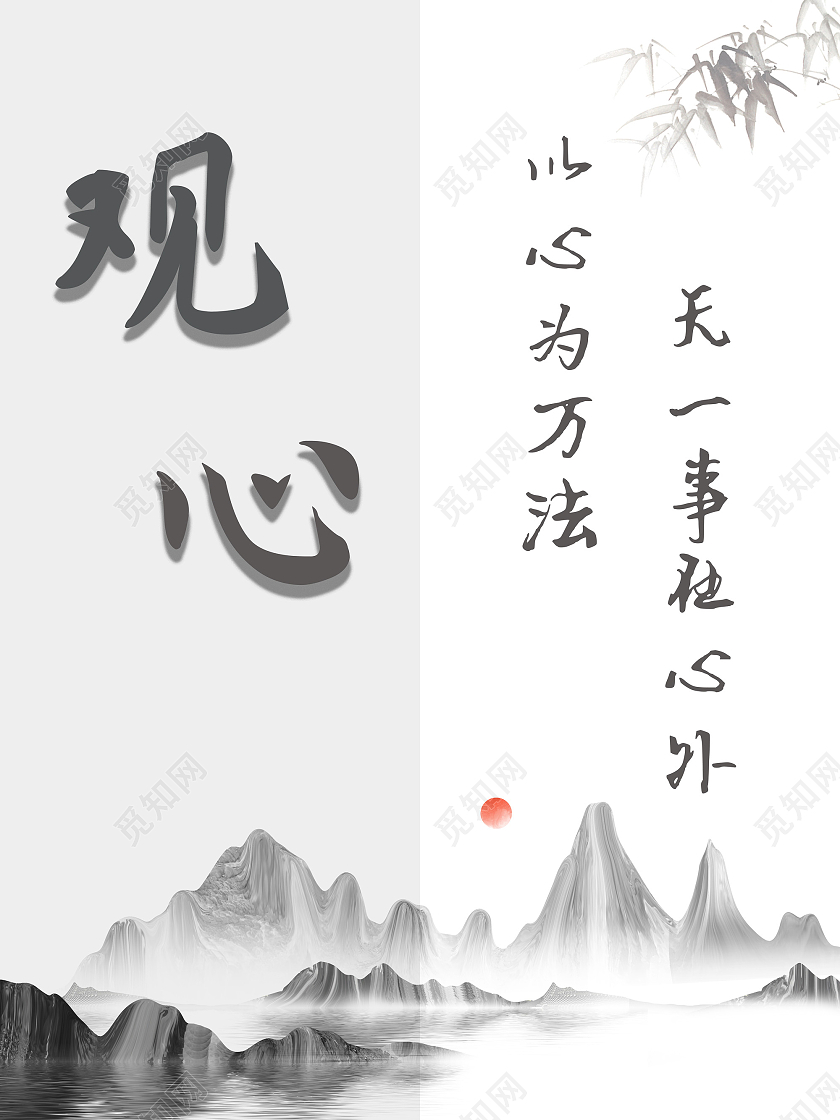 观心
以心为万法
无一事在心外
觅知网